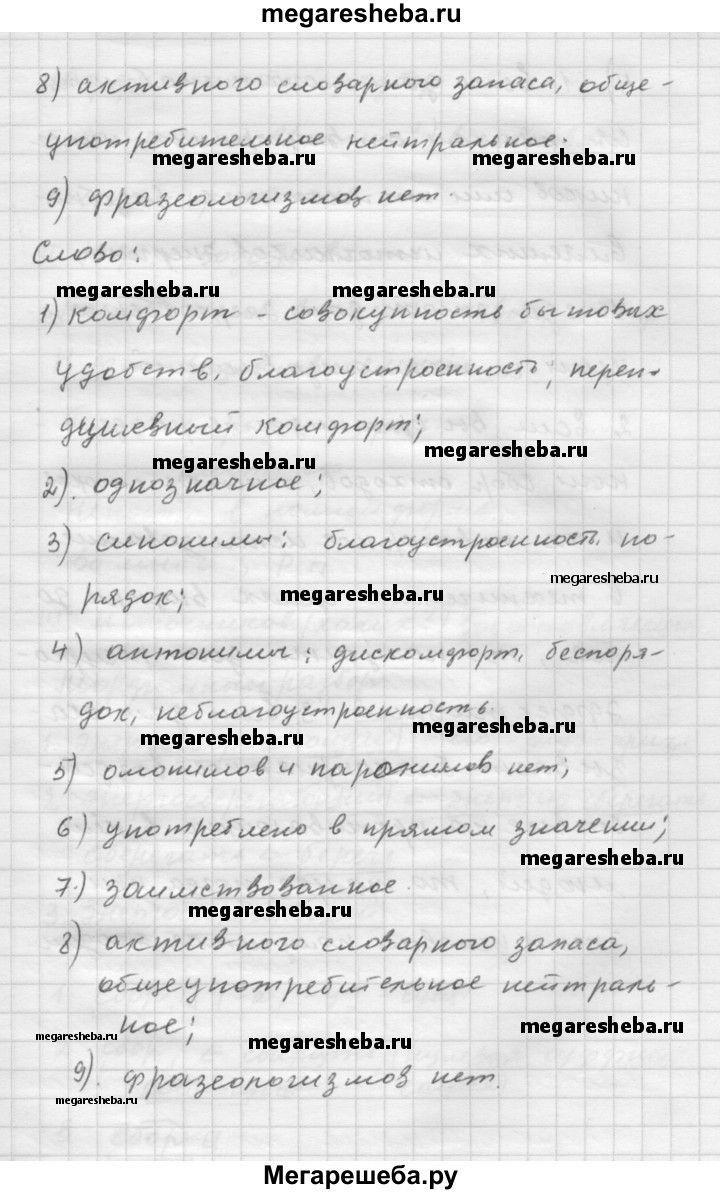 megaresheba.ru
8) активного словарного запаса, обще-
употребительное нейтральное.
megaresheba.ru megaresheba.ru
9) фразеологизмов нет.
Слово:
megaresheba.ru megaresheba.ru
1) комфорт - совокупность бытовых
удобств, благоустроенность; перен.
душевный комфорт;
megaresheba.ru megaresheba.ru
2). однозначное;
3) синонимы: благоустроенность, по-
megaresheba.ru
рядок; megaresheba.ru
4) антонимы: дискомфорт, беспоря-
док, неблагоустроенность.
megaresheba.ru megaresheba.ru
5) омонимов и паронимов нет;
6) употреблено в прямом значении;
megaresheba.ru
7.) заимствованное.
megaresheba.ru
8) активного словарного запаса,
общеупотребительное нейтраль-
ное;
megaresheba.ru megaresheba.ru megaresheba.ru
9). фразеологизмов нет.
megaresheba.ru
Мегарешеба.ру